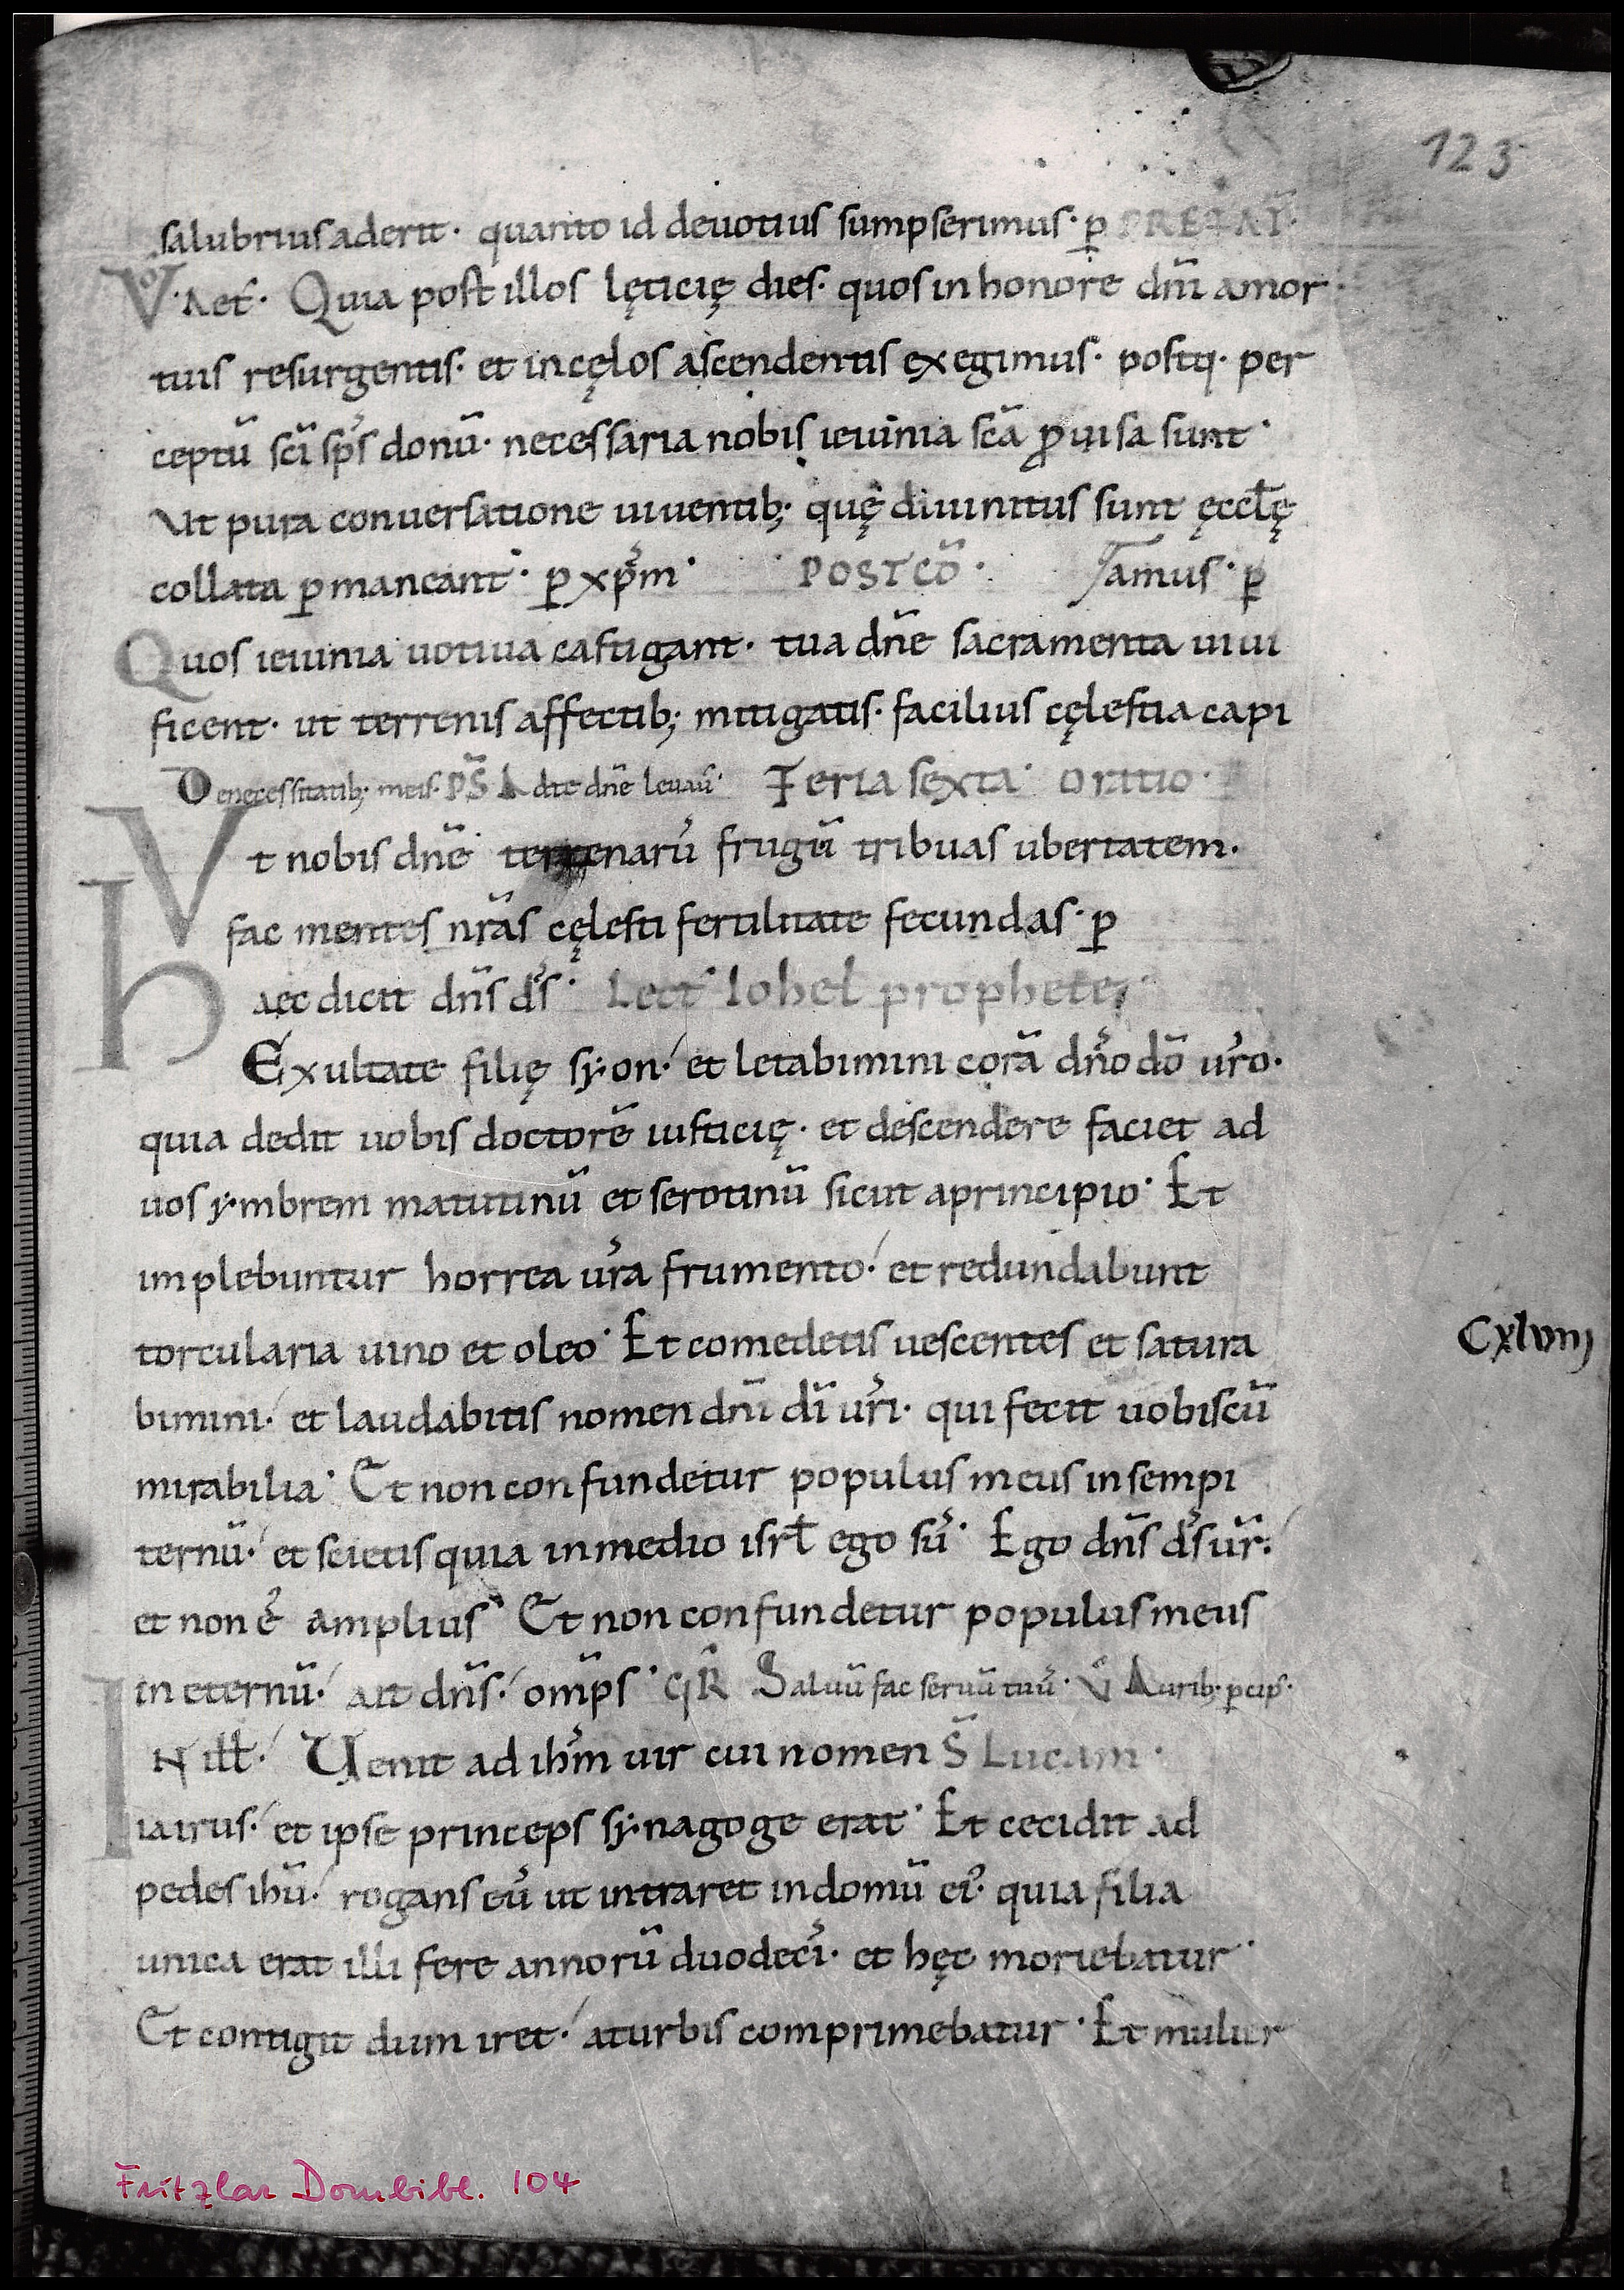 123
salubrius aderit· quanto id deuotius sumpserimus· p̱ PREFAT̄·
V̊·Aet̄· Quia post illos lęticię dies· quos in honorē dn̄i a mor·
tuis resurgentis· et in cęlos ascendentis exegimus· postq· per
ceptū sc̄i sp̄s donū· necessaria nobis ieiunia sc̄a ꝓuisa sunt·
Ut pura conuersatione uiuentib;· quę diuinitus sunt ęccłę
collata ꝑmaneant· ꝑ xp̄m· POSTCŌ· amus· ꝑ
Quos ieiunia uotiua castigant· tua dn̄e sacramenta uiui
ficent· ut terrenis affectib; mitigatis· facilius cęlestia capi
De necessitatib; meis· PS̄ Ad te dn̄e leuaū· Feria sexta· Oratio·
Ut nobis dn̄e terrenarū frugū tribuas ubertatem·
fac mentes nr̄as cęlesti fertilitate fecundas· ꝑ
Haec dicit dn̄s d̄s· Lect̄ Iohel prophetę·
Exultate filię sẏon· et letabimini corā dn̄o dō ur̄o·
quia dedit uobis doctorē iusticię· et descendere faciet ad
uos ẏmbrem matutinū et serotinū sicut a principio· Et
implebuntur horrea ur̄a frumento· et redundabunt
torcularia uino et oleo· Et comedetis uescentes et satura
Cxlviij
bimini· et laudabitis nomen dn̄i dī ur̄i· qui fecit uobiscū
mirabilia· Et non confundetur populus meus in sempi
ternū· et scietis quia in medio isrł ego sū· Ego dn̄s d̄s ur̄·
et non ē amplius· Et non confundetur populus meus
in eternū· ait dn̄s· omp̄s· GR̄ Saluū fac seruū tuū· V̄ Aurib; ꝑcip̄·
IN ill̄· Uenit ad ih̄m uir cui nomen S̄ Lucam·
iairus· et ipse princeps sẏnagoge erat· Et cecidit ad
pedes ih̄u· rogans eū ut intraret in domū ei᾽· quia filia
unica erat illi fere annorū duodecī· et hęc moriebatur·
Et contigit dum iret· a turbis comprimebatur· Et mulier
Fritzlar Dombibl. 104